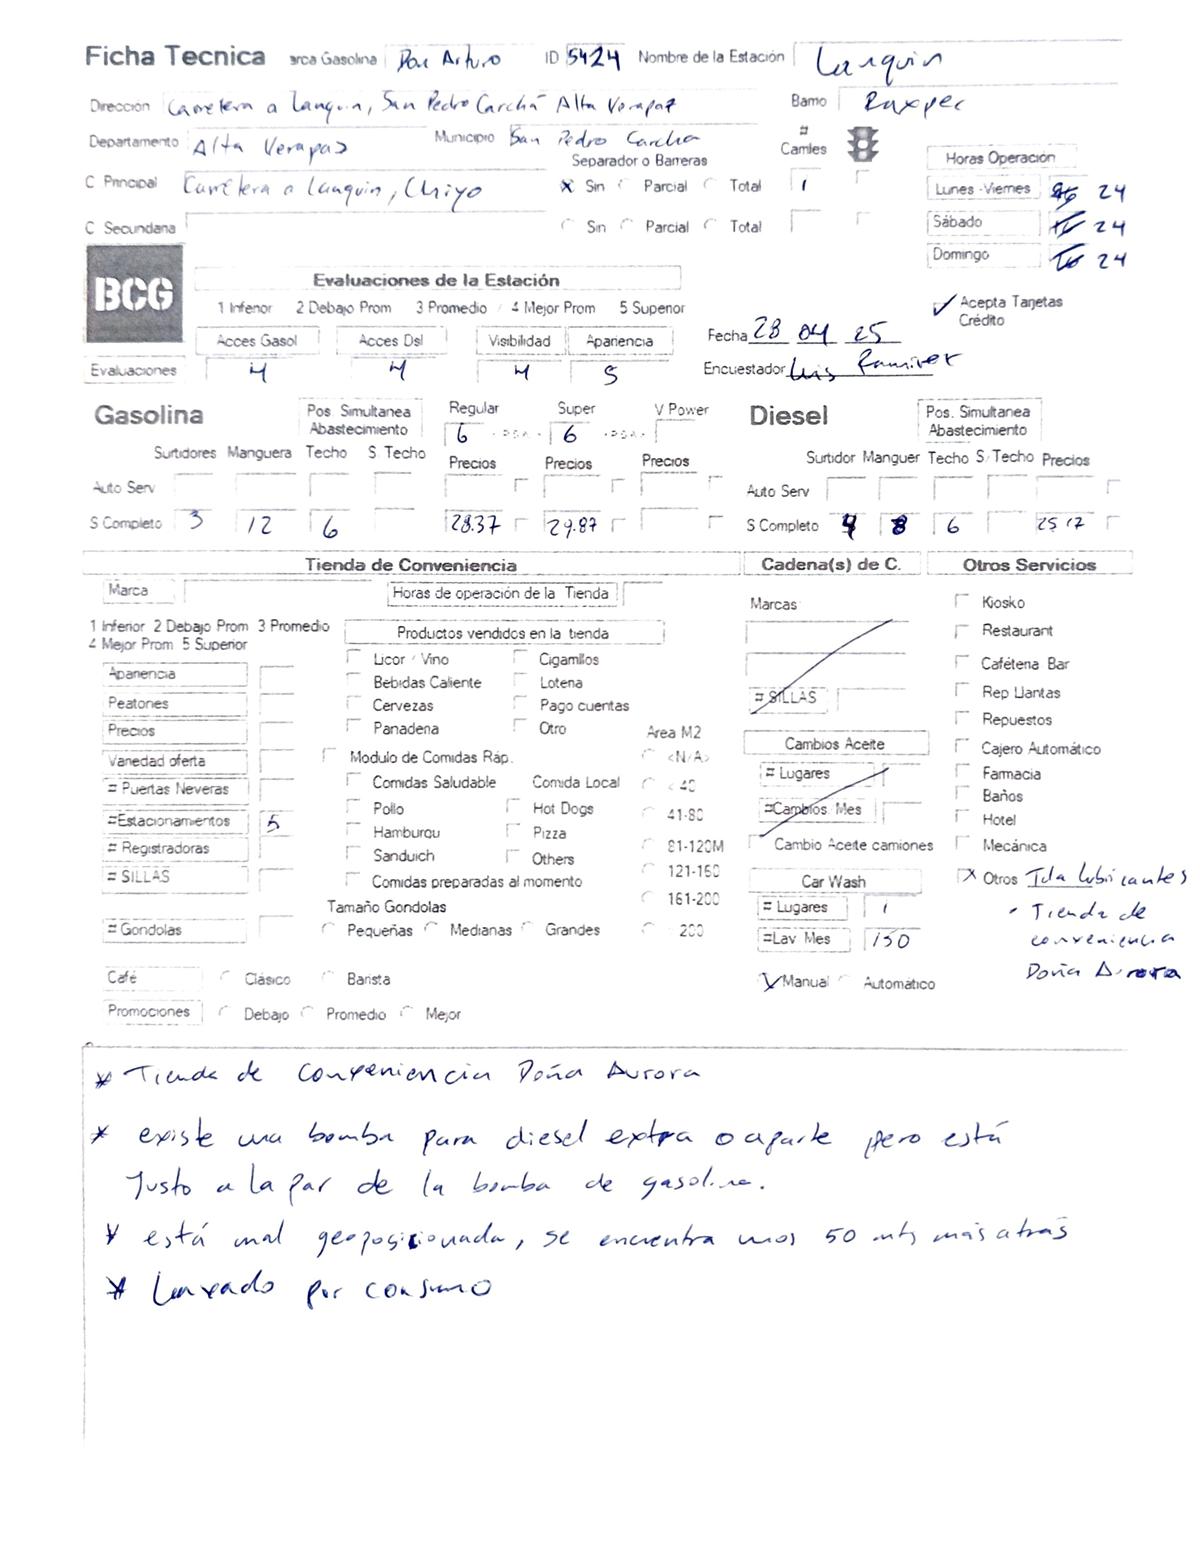 Ficha Tecnica arca Gasolina Don Arturo ID 5424 Nombre de la Estación Lanquin
Dirección Carretera a Lanquin, San Pedro Carchá Alta Verapaz Barrio Raxpec
Departamento Alta Verapaz Municipio San Pedro Carcha # Carriles
Separador o Barreras Horas Operación
C Principal Carretera a Lanquin, Chiyo X Sin Parcial Total 1 Lunes -Viernes 24
C Secundaria Sin Parcial Total Sábado 24
Domingo 24
BCG
Evaluaciones de la Estación
1 Inferior 2 Debajo Prom 3 Promedio / 4 Mejor Prom 5 Superior ✓ Acepta Tarjetas Crédito
Acces Gasol Acces Dsl Visibilidad Apariencia Fecha 28 04 25
Evaluaciones 4 4 4 5 Encuestador Luis Ramirez
Gasolina Pos. Simultanea Abastecimiento Regular Super V Power Diesel Pos. Simultanea Abastecimiento
6 6
Surtidores Manguera Techo S. Techo Precios Precios Precios Surtidor Manguer Techo S/Techo Precios
Auto Serv Auto Serv
S Completo 3 12 6 28.37 29.87 S Completo 4 8 6 25 17
Tienda de Conveniencia Cadena(s) de C. Otros Servicios
Marca Horas de operación de la Tienda Marcas Kiosko
1 Inferior 2 Debajo Prom 3 Promedio Productos vendidos en la tienda Restaurant
4 Mejor Prom 5 Superior
Licor / Vino Cigarrillos Cafétena Bar
Apariencia Bebidas Caliente Lotena Rep Llantas
Peatones Cervezas Pago cuentas # SILLAS Repuestos
Precios Panadena Otro Area M2
Variedad oferta Modulo de Comidas Ráp. <N/A> Cambios Aceite Cajero Automático
# Puertas Neveras Comidas Saludable Comida Local < 40 # Lugares Farmacia
Pollo Hot Dogs 41-80 #Cambios Mes Baños
#Estacionamientos 5 Hamburgu Pizza Hotel
# Registradoras Sanduich Others 81-120M Cambio Aceite camiones Mecánica
# SILLAS Comidas preparadas al momento 121-160 Car Wash X Otros Tda lubricantes
Tamaño Gondolas 161-200 # Lugares 1 • Tienda de
# Gondolas Pequeñas Medianas Grandes 200 #Lav Mes 150 conveniencia
Doña Aurora
Café Clásico Barista X Manual Automático
Promociones Debajo Promedio Mejor
* Tienda de Conveniencia Doña Aurora
* existe una bomba para diesel extra o aparte pero está
Justo a la par de la bomba de gasolina.
* está mal geoposicionada, se encuentra unos 50 mts más atrás
* Lavado por consumo